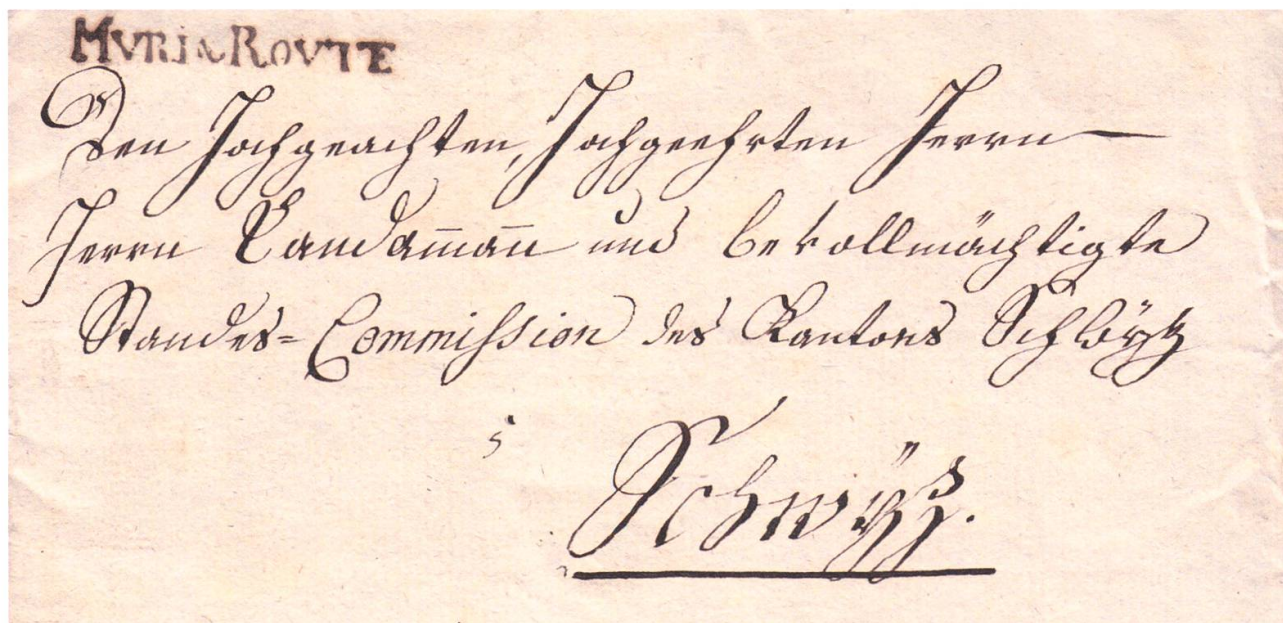 MVRI&ROVTE
Den Hochgeachten, Hochgeehrten Herrn
Herrn Landam̅an̅ und bevollmächtigte
Standes= Commission des Kantons Schwÿtz
5
Schwÿz.